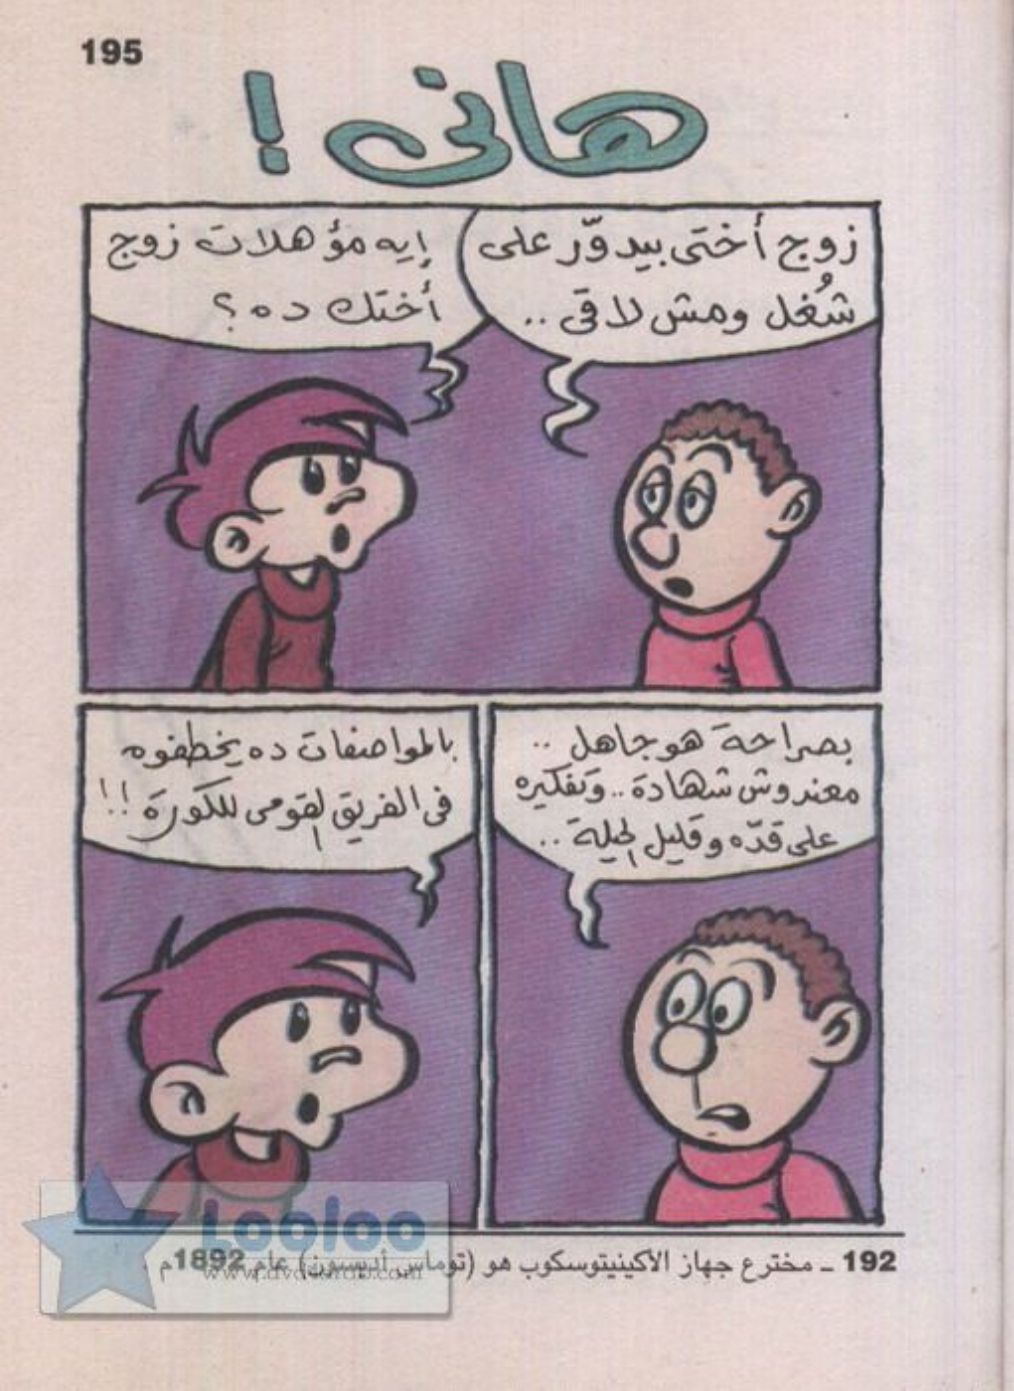 195
هانى !
زوج أختى بيدوّر على
شُغل ومش لاقى ..
إيه مؤهلات زوج
أختك ده ؟
بصراحة هو جاهل ..
معندوش شهادة .. وتفكيره
على قدّه وقليل الحيلة ..
بالمواصفات ده يخطفوه
فى الفريق القومى للكورة !!
192 ـ مخترع جهاز الأكينيتوسكوب هو (توماس أديسون) عام 1892م .
Looloo
www.dvd4arab.com